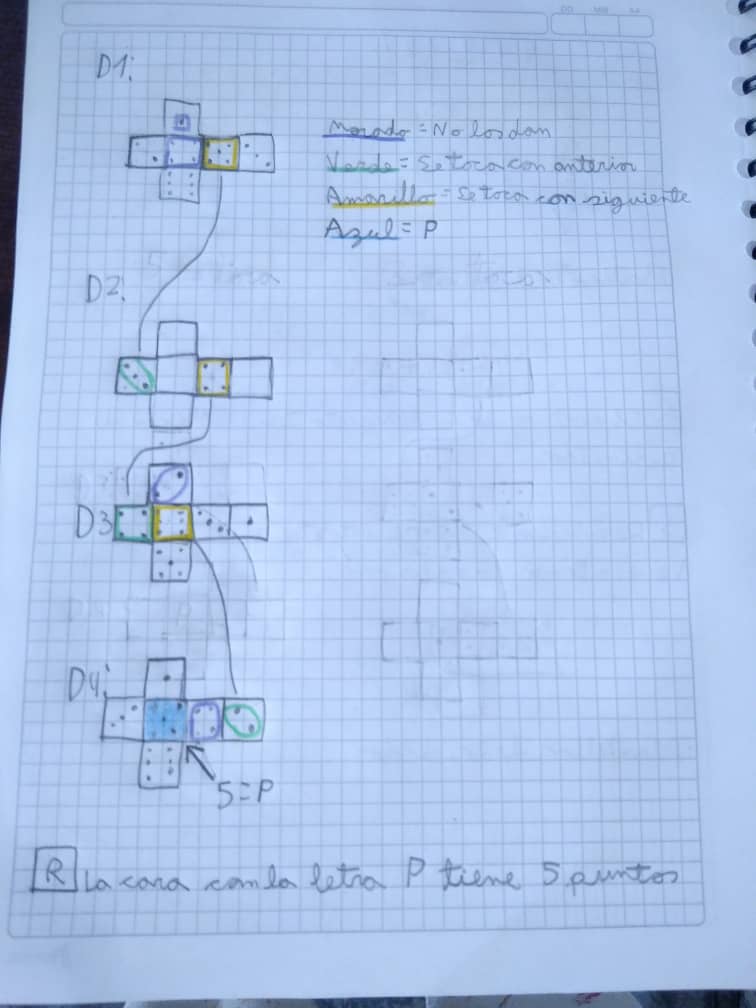 D1:
Morado = No los dan
Verde = Se toca con anterior
Amarillo = Se toca con siguiente
Azul = P
D2:
D3
D4:
5=P
R La cara con la letra P tiene 5 puntos